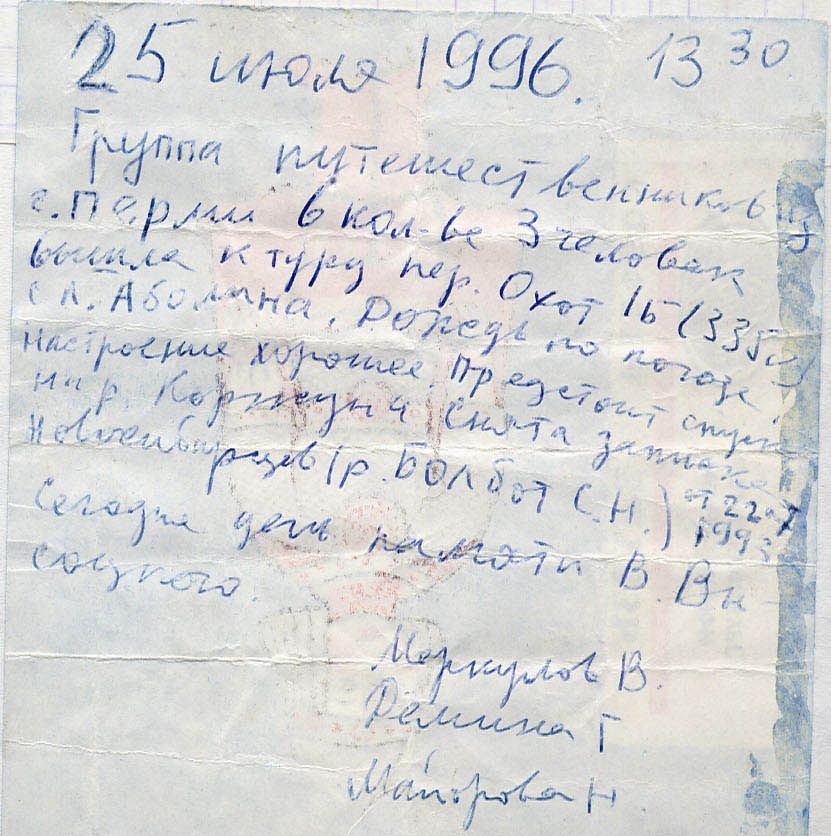 25 июля 1996. 13 30
Группа путешественников из
г. Перми в кол-ве 3 человек
вышла к туру пер. Охот 1Б (335
с л. Аболина. Дождь по погоде,
настроение хорошее. Предстоит спуск
на р. Коржун и снята записка
новосибирцев (р. Болбот С.Н.) от 22.7
1993
Сегодня день памяти В. Вы
соцкого.
Меркулов В.
Демина Г
Майорова Н.